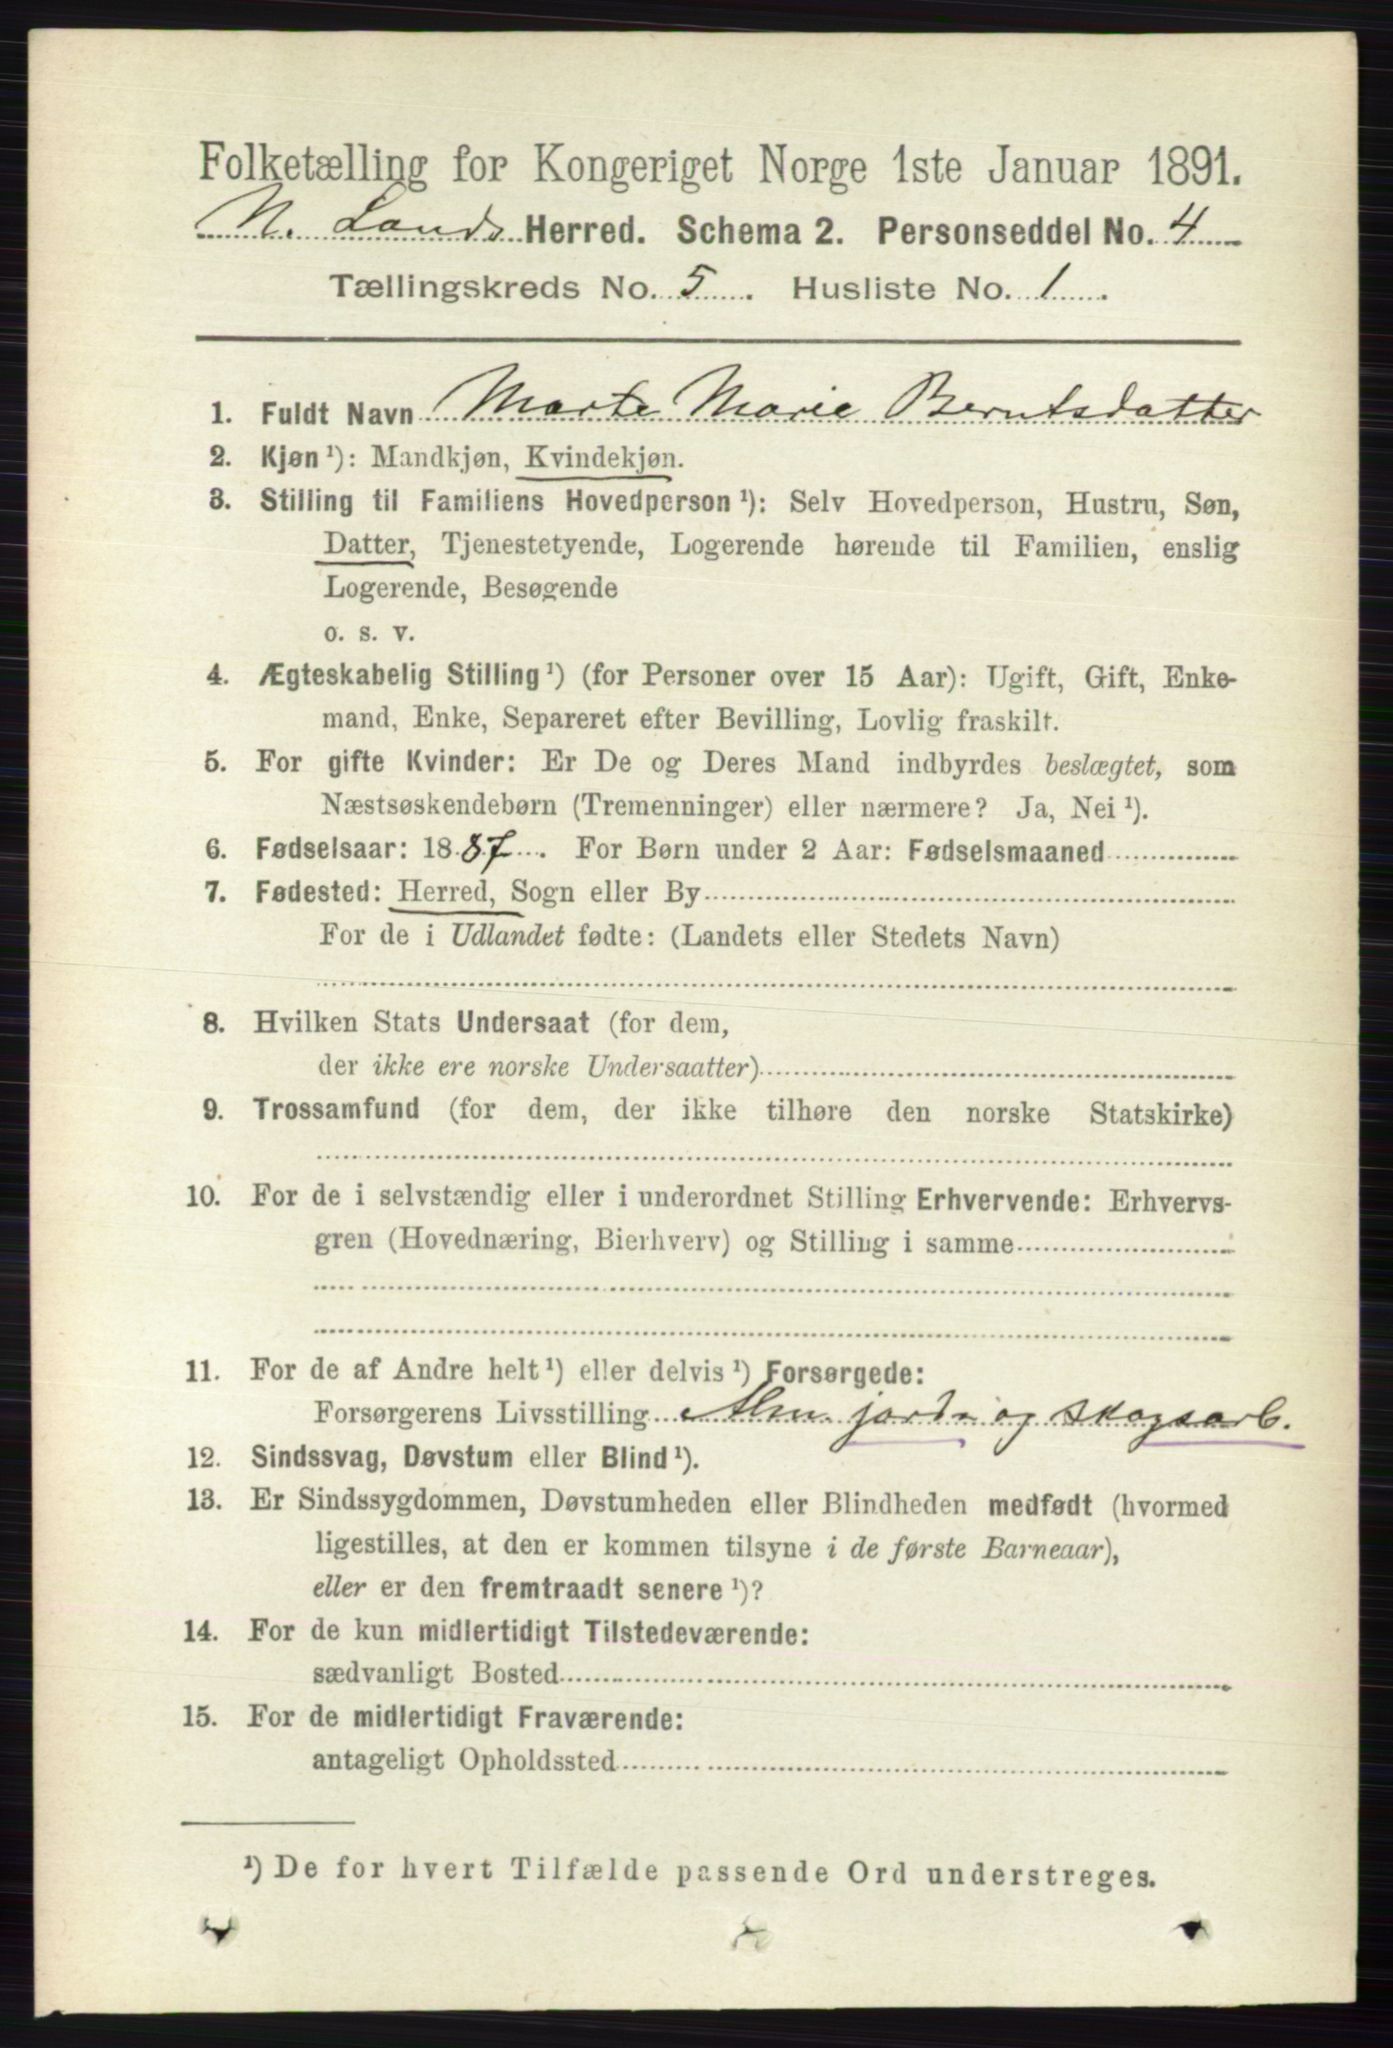 Folketælling for Kongeriget Norge 1ste Januar 1891.
N. Lands Herred. Schema 2. Personseddel No. 4
Tællingskreds No. 5. Husliste No. 1.
1. Fuldt Navn Marte Marie Berntsdatter
2. Kjøn¹): Mandkjøn, Kvindekjøn.
3. Stilling til Familiens Hovedperson¹): Selv Hovedperson, Hustru, Søn,
Datter, Tjenestetyende, Logerende hørende til Familien, enslig
Logerende, Besøgende
o. s. v.
4. Ægteskabelig Stilling¹) (for Personer over 15 Aar): Ugift, Gift, Enke-
mand, Enke, Separeret efter Bevilling, Lovlig fraskilt.
5. For gifte Kvinder: Er De og Deres Mand indbyrdes beslægtet, som
Næstsøskendebørn (Tremenninger) eller nærmere? Ja, Nei¹).
6. Fødselsaar: 1887. For Børn under 2 Aar: Fødselsmaaned
7. Fødested: Herred, Sogn eller By
For de i Udlandet fødte: (Landets eller Stedets Navn)
8. Hvilken Stats Undersaat (for dem,
der ikke ere norske Undersaatter)
9. Trossamfund (for dem, der ikke tilhøre den norske Statskirke)
10. For de i selvstændig eller i underordnet Stilling Erhvervende: Erhvervs-
gren (Hovednæring, Bierhverv) og Stilling i samme
11. For de af Andre helt¹) eller delvis¹) Forsørgede:
Forsørgerens Livsstilling Alm. jord- og skogsarb.
12. Sindssvag, Døvstum eller Blind¹).
13. Er Sindssygdommen, Døvstumheden eller Blindheden medfødt (hvormed
ligestilles, at den er kommen tilsyne i de første Barneaar),
eller er den fremtraadt senere¹)?
14. For de kun midlertidigt Tilstedeværende:
sædvanligt Bosted
15. For de midlertidigt Fraværende:
antageligt Opholdssted
¹) De for hvert Tilfælde passende Ord understreges.